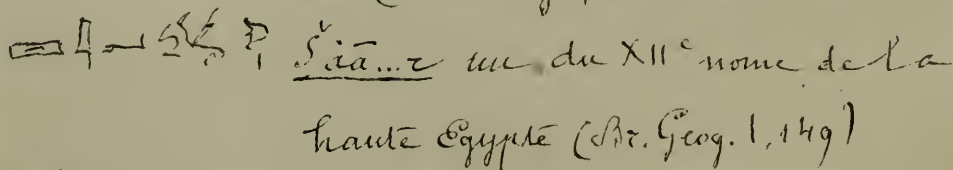 Šàā...z un du XIIe nome de la
haute Egypte (Br. Geog. 1, 149)